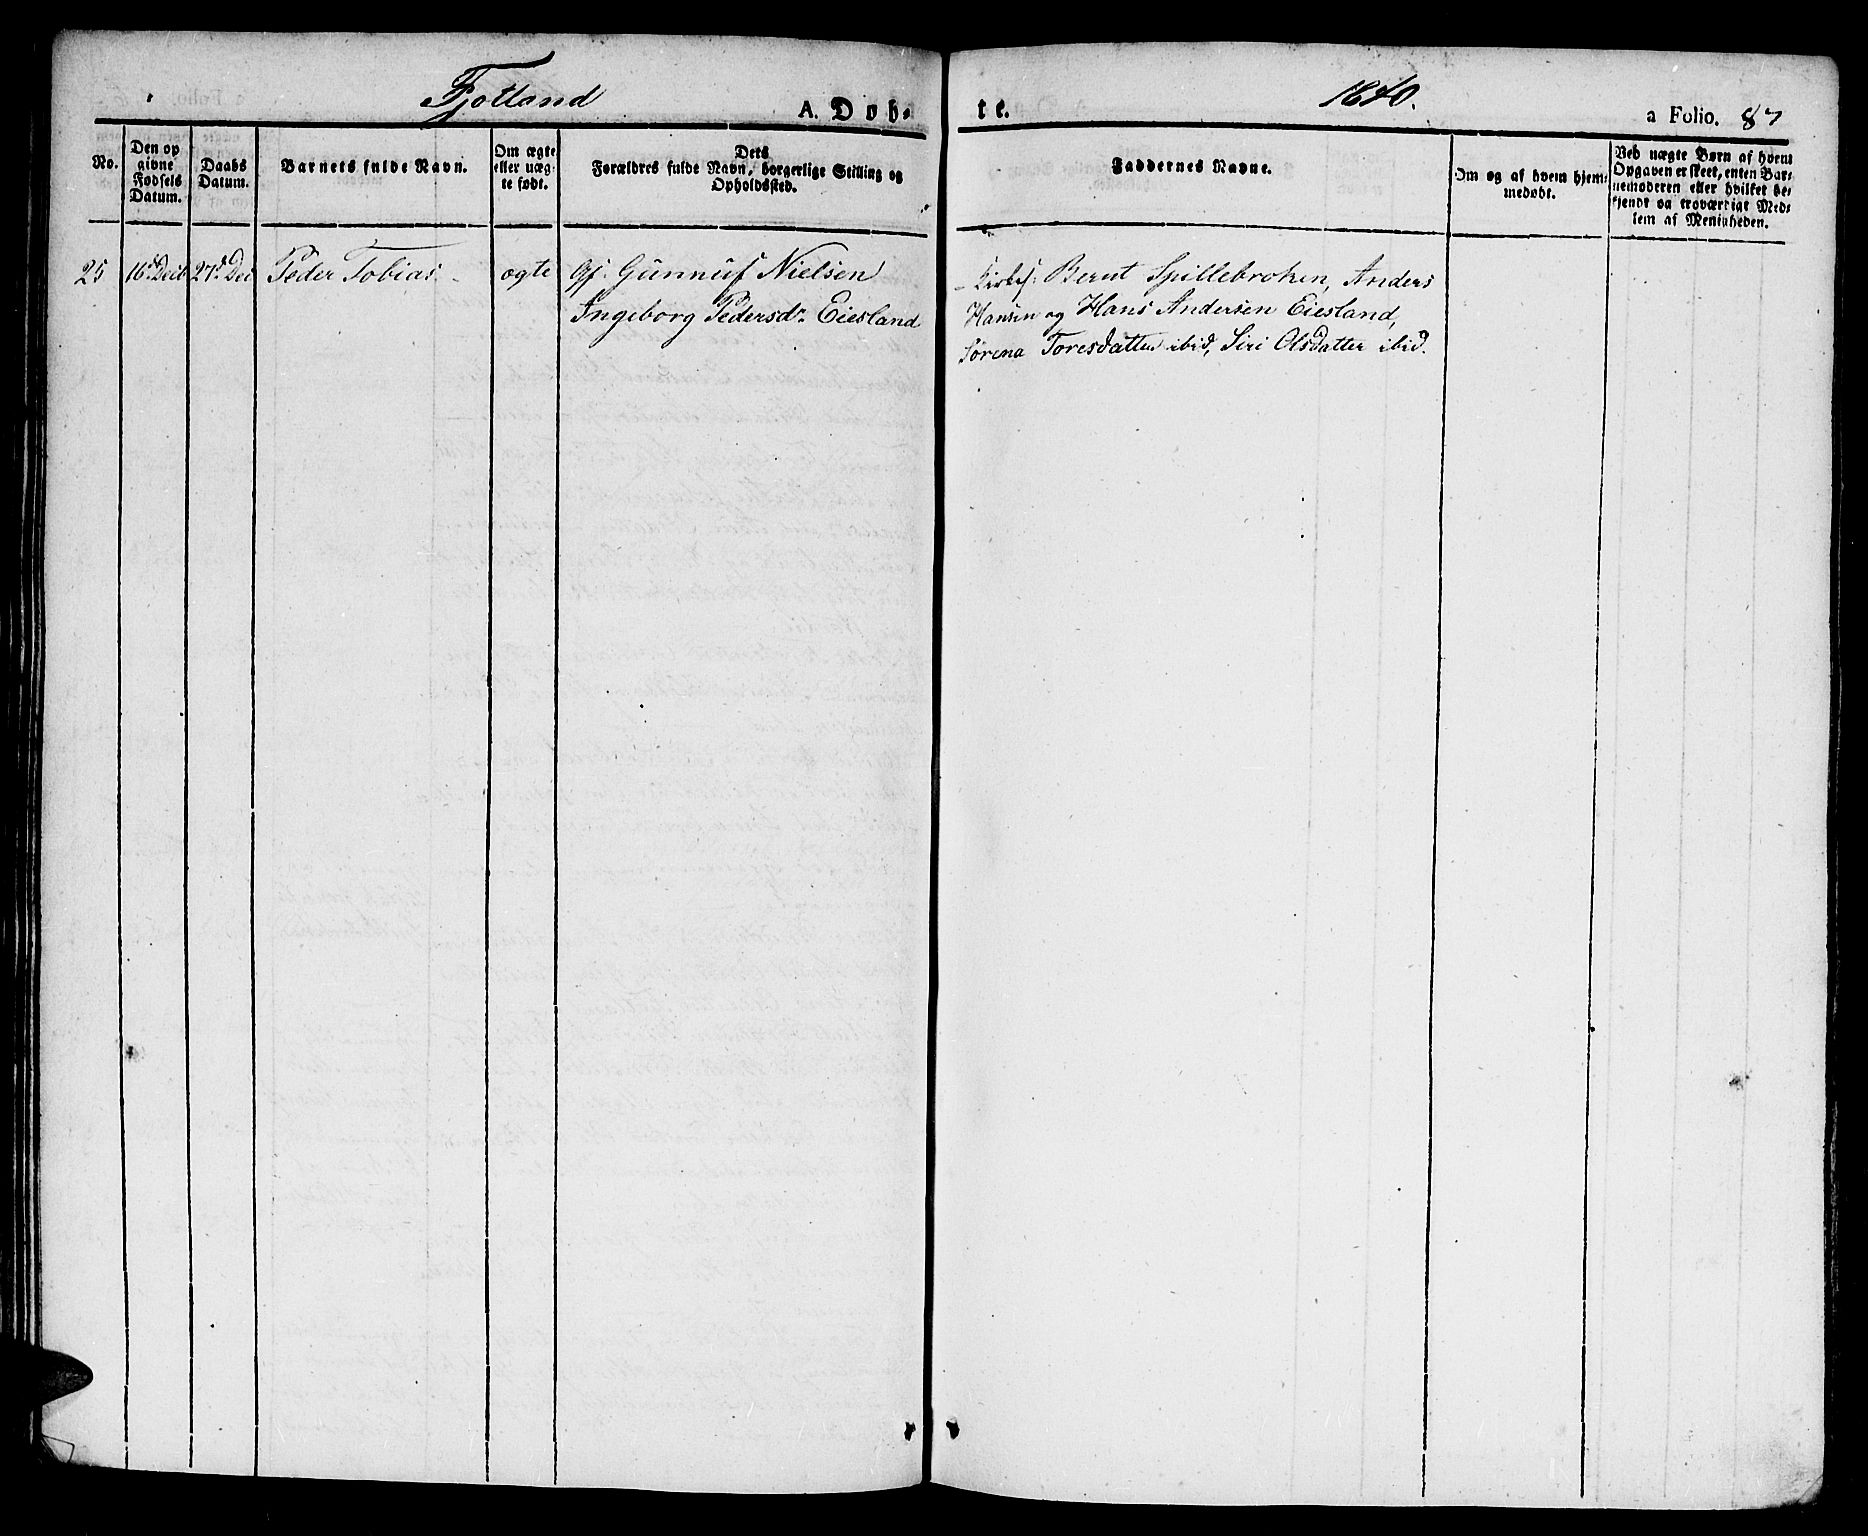 Fjotland
A. Døb-
te.
1840.
a Folio. 87
No.
Den op
givne
Fødsels
Datum.
Daabs
Datum.
Barnets fulde Navn.
Om ægte
eller uæg-
te født.
Dets
Forældres fulde Navn, borgerlige Stilling og
Opholdssted.
Faddernes Navne.
Om og af hvem hjem-
medøbt.
Ved uægte Børn af hvem
Opgaven er skeet, enten Bar-
nemoderen eller hvilket be-
kjendt og troværdigt Med-
lem af Menigheden.
25 16d Decb 27d Dec Peder Tobias ægte Gj: Gunnuf Nielsen
Ingeborg Pedersdr Eiesland
Bernt Spillebroken, Anders
Hansen og Hans Andersen Eiesland,
Sørena Toresdatter ibid, Siri Olsdatter ibid.